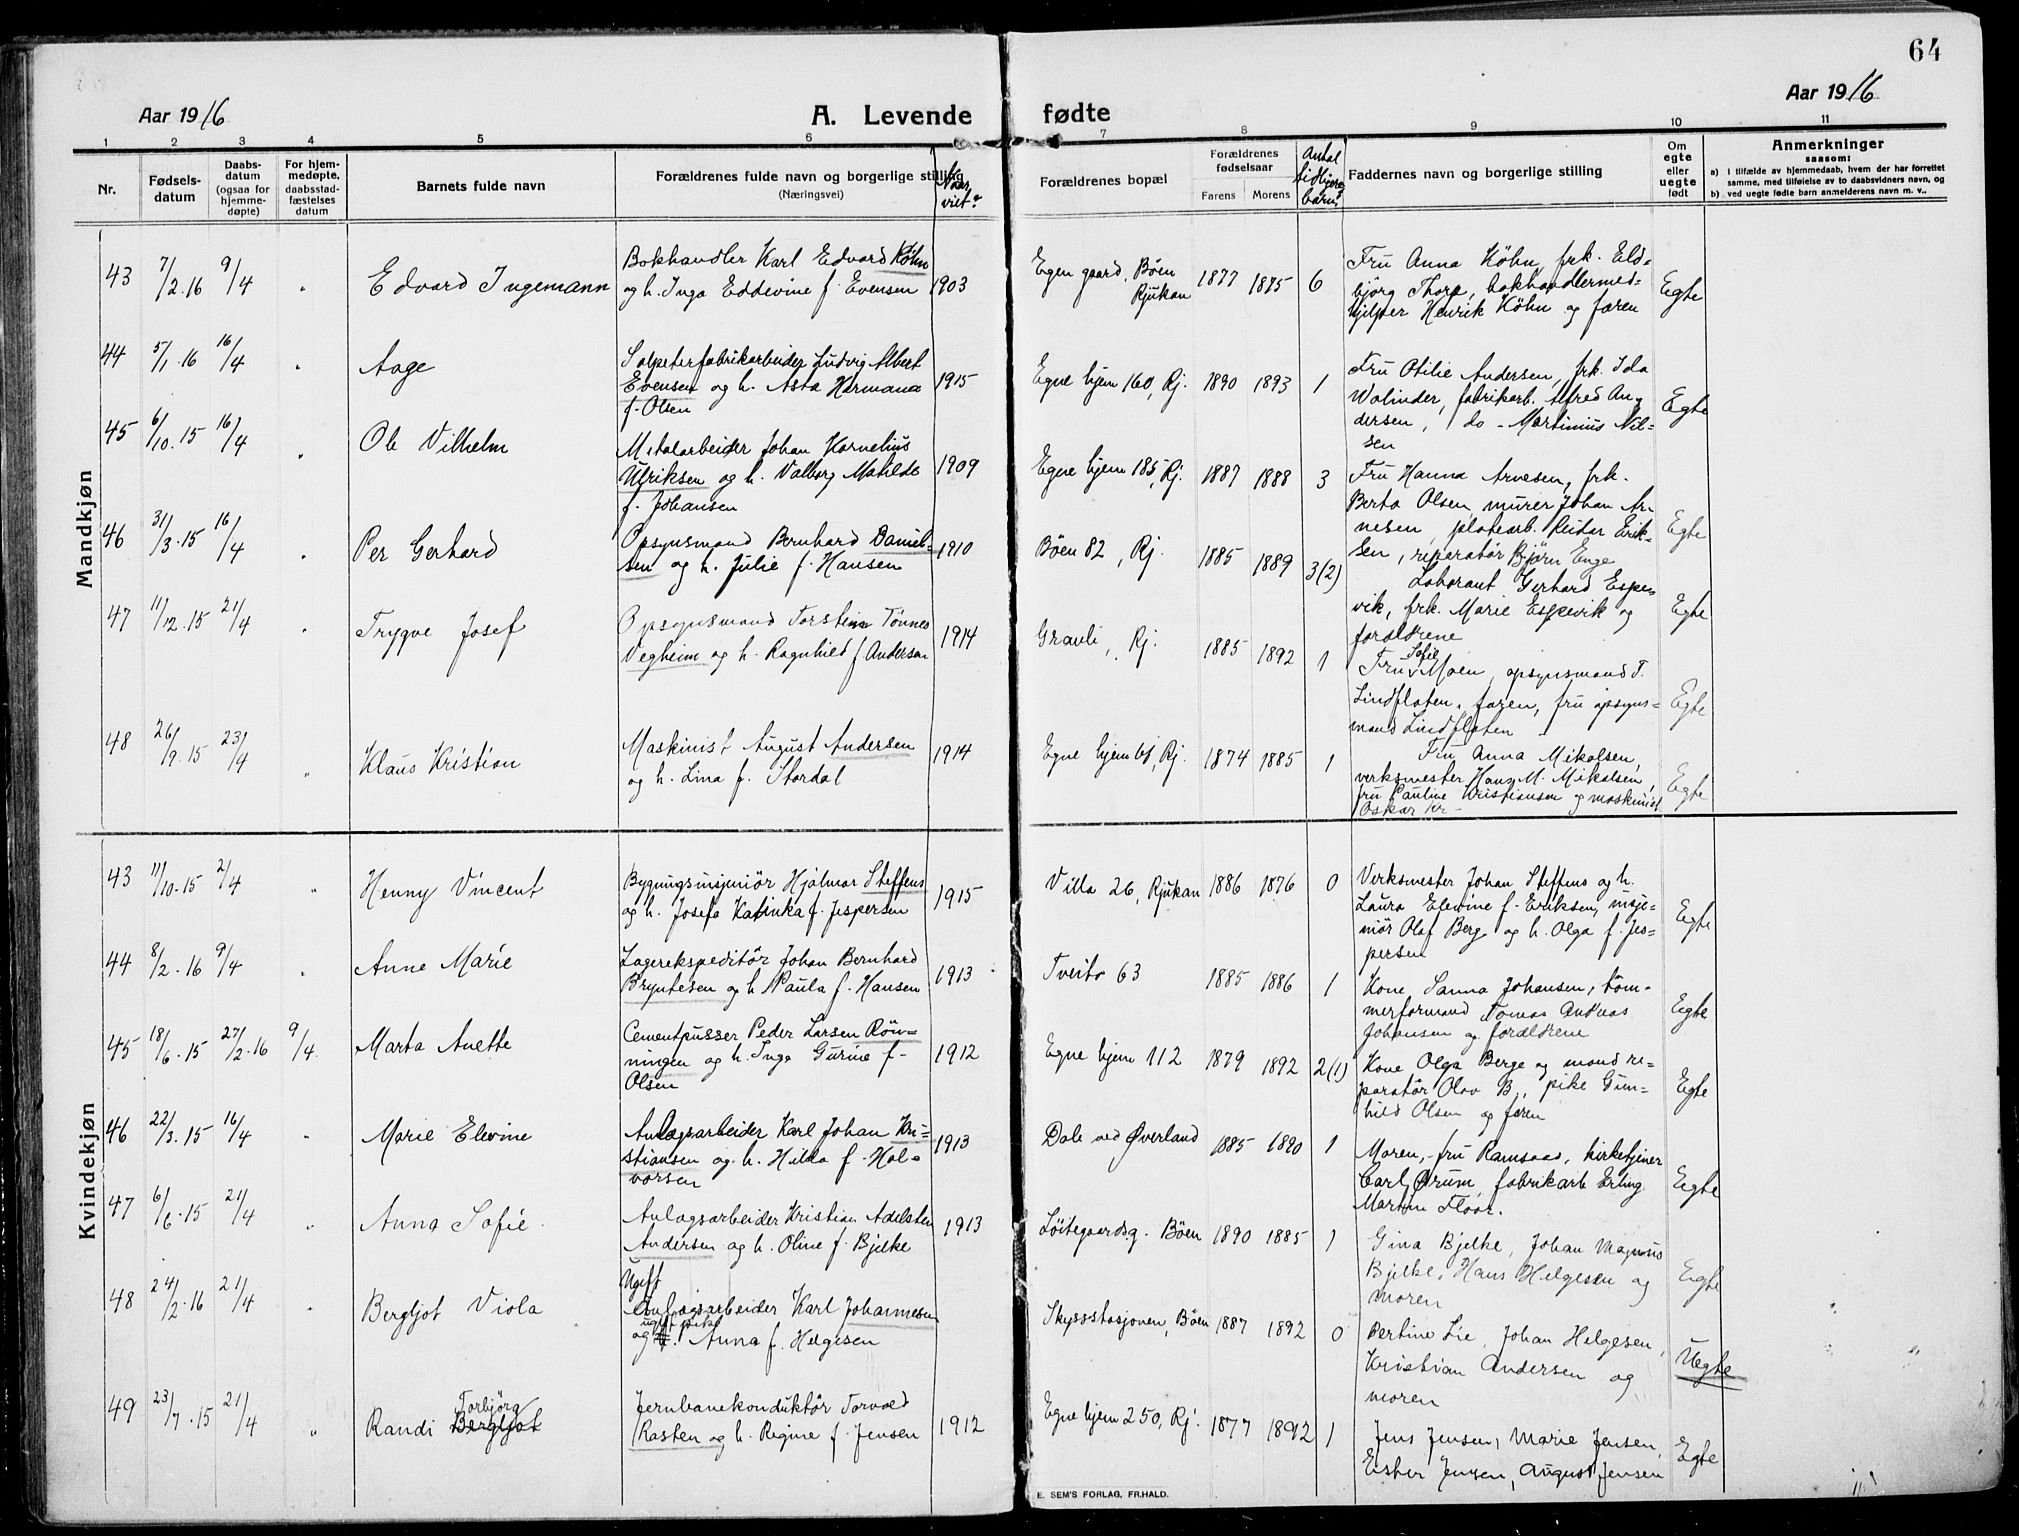 64
Aar 1916
A. Levende
fødte
Aar 1916
1 2 3 4 5 6 7 8 9 10 11
Nr.
Fødsels-
datum
Daabs-
datum
(ogsaa for
hjemme-
døpte)
For hjem-
medøpte,
daabsstad-
fæstelses
datum
Barnets fulde navn
Forældrenes fulde navn og borgerlige stilling
(Næringsvei)
Naar
viet?
Forældrenes bopæl
Forældrenes
fødselsaar
Farens Morens
Antal
tidligere
barn?
Faddernes navn og borgerlige stilling
Om
egte
eller
uegte
født
Anmerkninger
saasom:
a) i tilfælde av hjemmedaab, hvem der har forrettet
samme, med tilføielse av to daabsvidners navn, og
b) ved uegte fødte barn anmelderens navn m. v..
Mandkjøn
43 7/2.16 9/4 " Edvard Ingemann
Bokhandler Karl Edvard Köhn
og h. Inga Eddevine f. Evensen 1903
Egen gaard, Böen
Rjukan
1877 1875 6
Fru Anna Köhn, frk. Eld-
bjørg Thorp, bokhandlermed-
hjelper Henrik Köhn og faren
Egte
44 5/1.16 16/4 " Aage
Salpeterfabrikarbeider Ludvig Albert
Evensen og h. Asta Hermana
f. Olsen
1915
Egne hjem 160, Rj. 1890 1893 1
Fru Otilie Andersen, frk. Ida
Wolinder, fabrikarb. Alfred An-
dersen, do - Martinius Nil-
sen
Egte
45 6/10.15 16/4 " Ole Vilhelm
Metalarbeider Johan Kornelius
Ulriksen og h. Valborg Matilde
f. Johansen
1909
Egne hjem 185, Rj. 1887 1888 3
Fru Hanna Arnesen, frk.
Berta Olsen, murer Johan Ar-
nesen, platearb. Reidar Erik-
sen, reparatør Björn Enge
Egte
46 31/3.15 16/4 " Per Gerhard
Opsynsmand Bernhard Daniel-
sen og h. Julie f. Hansen
1910
Böen 82, Rj. 1885 1889 3(2)
Laborant Gerhard Espe-
vik, frk. Marie Espevik og
forældrene
Egte
47 11/12.15 21/4 " Trygve Josef
Opsynsmand Torstein Tönnes
Vegheim og h. Ragnhild f. Andersen
1914
Gravli, Rj. 1885 1892 1
Sofie
Fru Moen, opsynsmand T.
Lindfloten, faren, fru opsyns-
mand Lindfloten
Egte
48 26/9.15 23/4 " Klaus Kristian
Maskinist August Andersen
og h. Lina f. Stordal
1914
Egne hjem 61, Rj. 1874 1885 1
Fru Anna Mikalsen,
verksmester Hans M. Mikalsen,
fru Pauline Kristiansen og maskinist
Oskar Kr-
Egte
Kvindekjøn
43 11/10.15 2/4 " Henny Vincent
Bygningsinsjeniör Hjalmar Steffens
og h. Josefa Katinka f. Jespersen
1915
Villa 26, Rjukan 1886 1876 0
Verksmester Johan Steffens og h.
Laura Elevine f. Eriksen, insje-
niör Olaf Berg og h. Olga f. Jes-
persen
Egte
44 8/2.16 9/4 " Anne Marie
Lagerekspeditör Johan Bernhard
Bryntesen og h. Paula f. Hansen
1913
Tveito 63 1885 1886 1
Kone Sanna Johansen, töm-
merformand Tomas Andreas
Johansen og forældrene
Egte
45 18/6.15 27/2.16 9/4. Marta Anette
Cementpusser Peder Larsen Rön-
ningen og h. Inga Gurine f.
Olsen
1912
Egne hjem 112 1879 1892 2(1)
Kone Olga Berge og mand re-
paratör Olav B., pike Gun-
hild Olsen og faren
Egte
46 22/3.15 16/4 " Marie Elevine
Anlagsarbeider Karl Johan Kri-
stiansen og h. Hilda f. Hal-
vorsen
1913
Dale ved Øverland 1885 1890 1
Moren, fru Ramsaas, kirketjener
Carl Ørum, fabrikarb. Erling
Martin Floor.
Egte
47 6/6.15 21/4 " Anna Sofie
Anlagsarbeider Kristian Adelsten
Andersen og h. Oline f. Bjelke
1913
Löitegaardsg. Böen 1890 1885 1
Gina Bjelke, Johan Magnus
Bjelke, Hans Helgesen og
moren
Egte
48 24/2.16 21/4 " Bergljot Viola
Ugift
Anlagsarbeider Karl Johannesen
ugift pike
og h. Anna f. Helgesen
Skysstasjonen, Böen 1887 1892 0
Pertine Lie, Johan Helgesen,
Kristian Andersen og
moren
Uegte
49 23/7.15 21/4 " Randi Bergljot
Torbjörg
Jernbanekonduktör Torvald
Kasten og h. Regine f. Jensen
1912
Egne hjem 250, Rj. 1877 1892 1
Jens Jensen, Marie Jensen,
Ester Jensen, August Jensen
Egte
E. SEM'S FORLAG, FR.HALD.